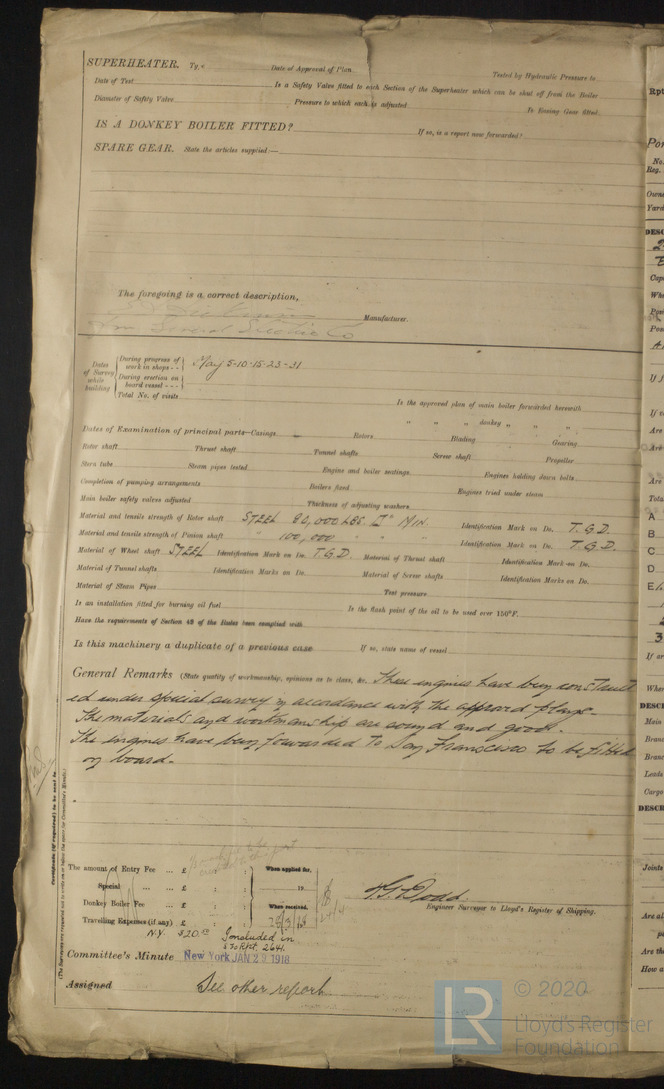 SUPERHEATER. Date of Approval of Plan Tested by Hydraulic Pressure to
Date of Test Is a Safety Valve fitted to each Section of the Superheater which can be shut off from the Boiler
Diameter of Safety Valve Pressure to which each is adjusted Is Easing Gear fitted
IS A DONKEY BOILER FITTED? If so, is a report now forwarded?
SPARE GEAR. State the articles supplied:—
The foregoing is a correct description,
Manufacturer.
General Electric Co
Dates of Survey while building
During progress of work in shops - - May 5-10-15-23-31
During erection on board vessel - - -
Total No. of visits
Is the approved plan of main boiler forwarded herewith
" " " donkey " " "
Dates of Examination of principal parts—Casings Rotors Blading Gearing
Rotor shaft Thrust shaft Tunnel shafts Screw shaft Propeller
Stern tube Steam pipes tested Engine and boiler seatings Engines holding down bolts
Completion of pumping arrangements Boilers fixed Engines tried under steam
Main boiler safety valves adjusted Thickness of adjusting washers
Material and tensile strength of Rotor shaft STEEL 80,000 LBS. □" MIN. Identification Mark on Do. T.G.D.
Material and tensile strength of Pinion shaft " 100,000 " " " Identification Mark on Do. T.G.D.
Material of Wheel shaft STEEL Identification Mark on Do. T.G.D. Material of Thrust shaft Identification Mark on Do.
Material of Tunnel shafts Identification Marks on Do. Material of Screw shafts Identification Marks on Do.
Material of Steam Pipes Test pressure
Is an installation fitted for burning oil fuel Is the flash point of the oil to be used over 150°F.
Have the requirements of Section 49 of the Rules been complied with
Is this machinery a duplicate of a previous case If so, state name of vessel
General Remarks (State quality of workmanship, opinions as to class, &c. These engines have been construct
ed under special survey in accordance with the approved plans.
The materials and workmanship are sound and good.
The engines have been forwarded to San Francisco to be fitted
on board.
Certificate (if required) to be sent to
(The Surveyors are requested not to write on or below the space for Committee's Minute.)
The amount of Entry Fee ... £ : : When applied for,
Special ... ... £ : : 19
Donkey Boiler Fee ... £ : : When received,
Travelling Expenses (if any) £ : :
N.Y. $20.00 Included in
S. Fo Rpt. 2641.
Engineer Surveyor to Lloyd's Register of Shipping.
Committee's Minute New York JAN 29 1918
Assigned See other report
© 2020
Lloyd's Register
Foundation
LR